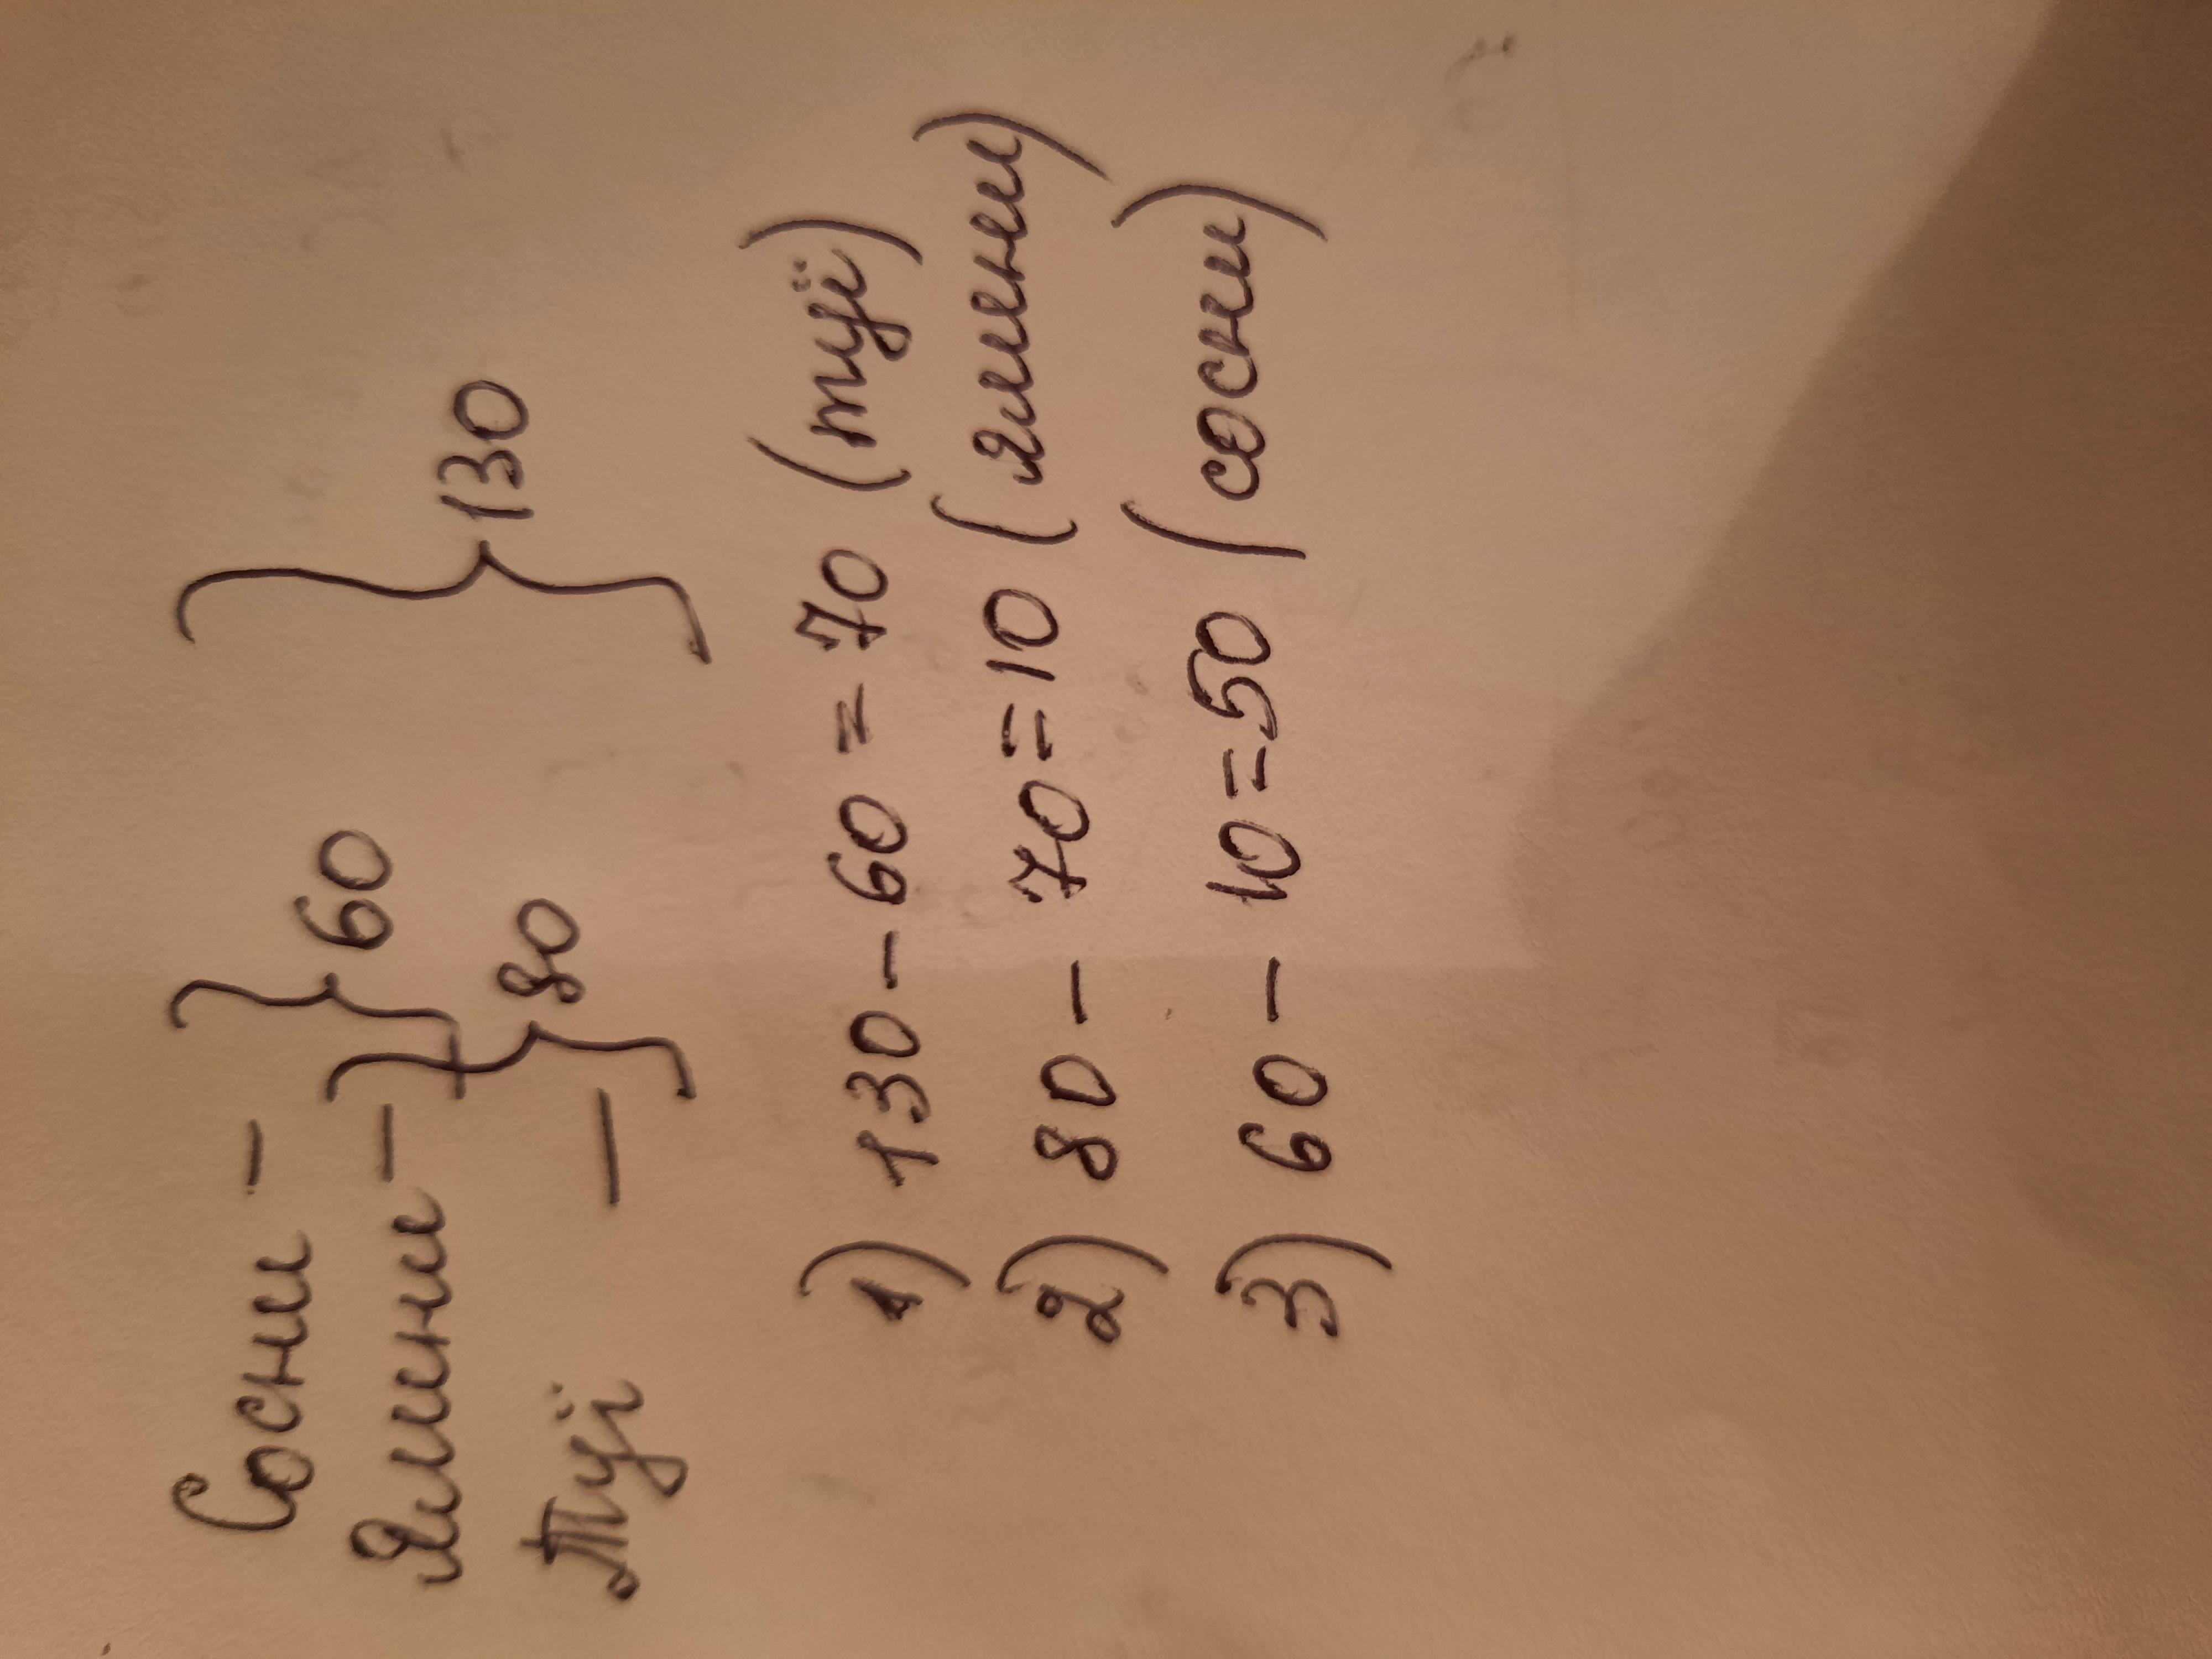 Сосни - } 60 } 130
Ялинки - } 80
Туї -
1) 130 - 60 = 70 (туї)
2) 80 - 70 = 10 (ялинки)
3) 60 - 10 = 50 (сосни)